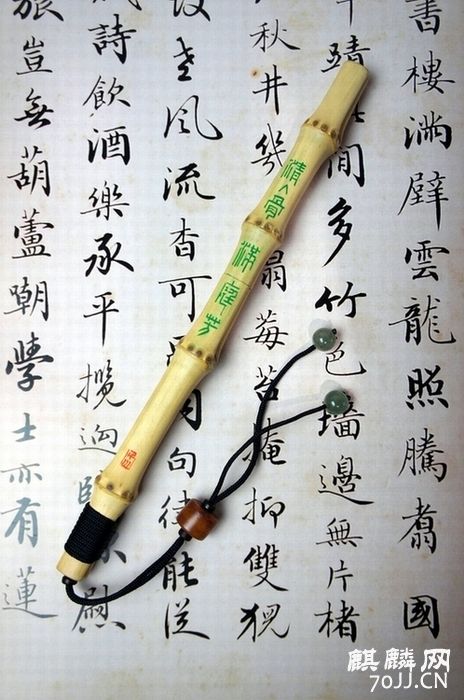 書樓滿壁雲龍照騰翥國
蹟間多竹色墻邊無片楮
秋井莓苔掩抑雙猊
老風流杳可句待能從
詩飲酒樂承平攬慰
豈無葫蘆朝學士亦有蓮
人骨
滿庭芳
麒麟网
70JJ.CN